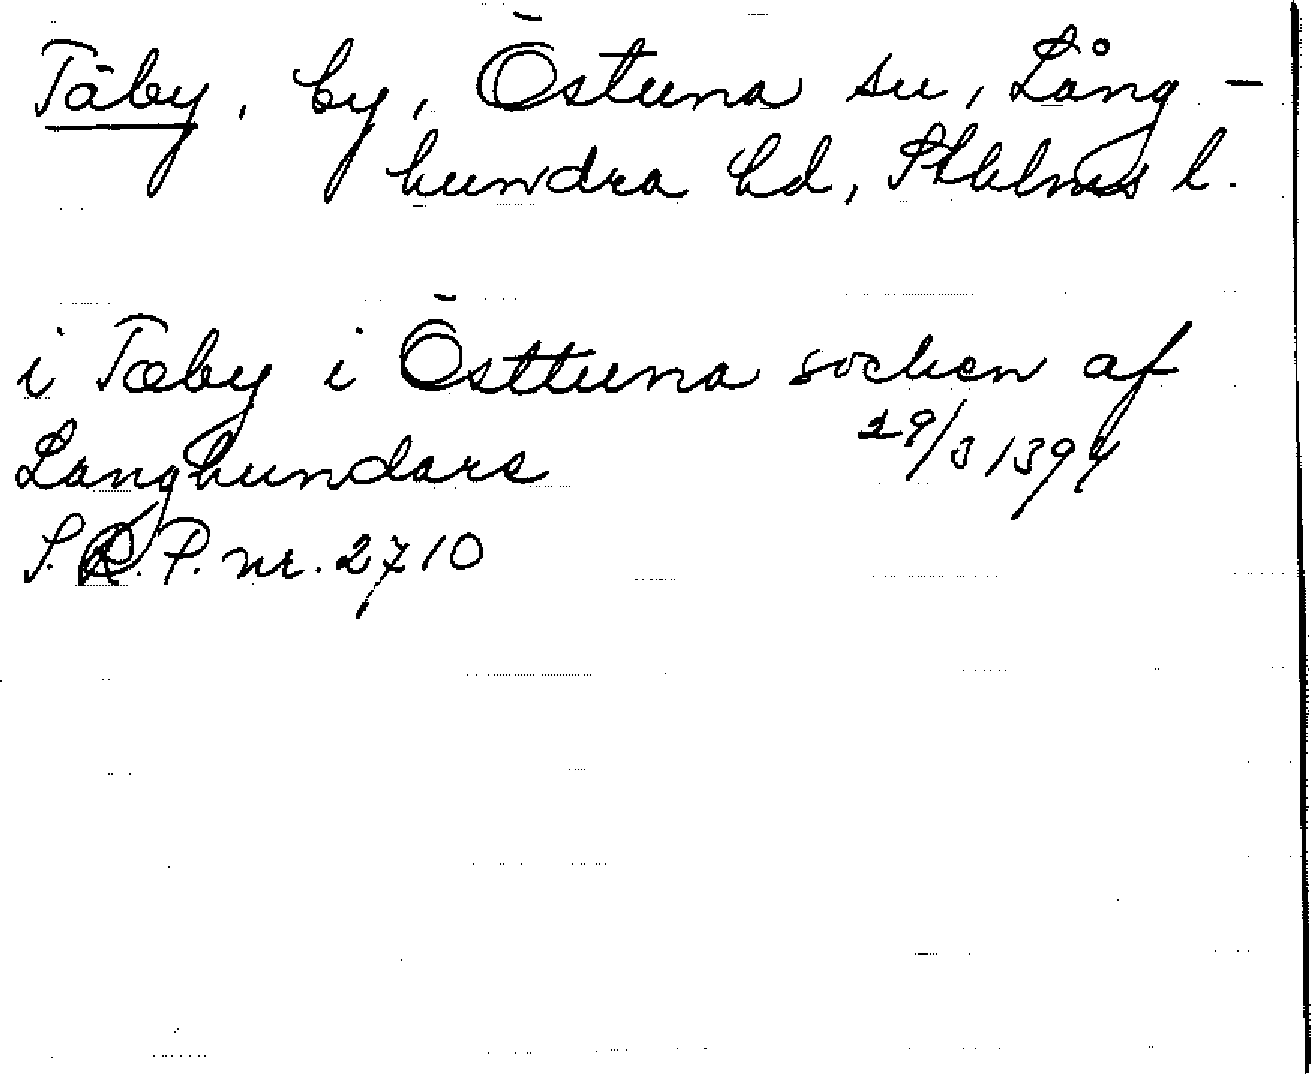 Täby, by, Östuna sn, Lång-
hundra hd, Sthlms l.
i Tæby i Østtuna sochen af
Langhundare 29/3 1394
S.R.P. nr. 2710